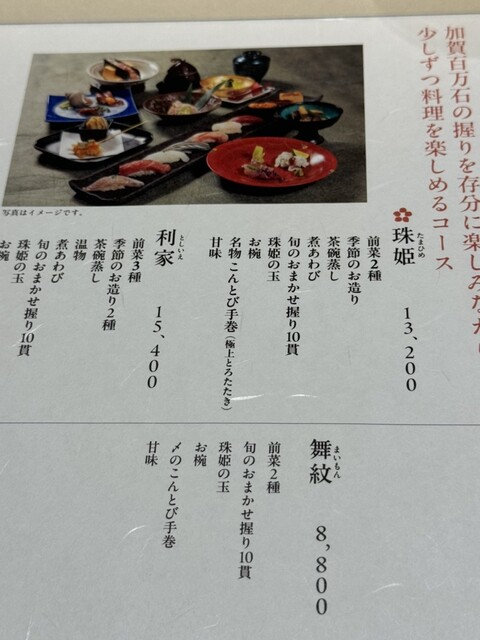 加賀百万石の握りを存分に楽しみながら
少しずつ料理を楽しめるコース
写真はイメージです。
珠姫 たまひめ 13,200
前菜2種
季節のお造り
茶碗蒸し
煮あわび
旬のおまかせ握り10貫
珠姫の玉
お椀
名物こんとび手巻(極上とろたたき)
甘味
利家 としいえ 15,400
前菜3種
季節のお造り2種
茶碗蒸し
温物
煮あわび
旬のおまかせ握り10貫
珠姫の玉
お椀
舞紋 まいもん 8,800
前菜2種
旬のおまかせ握り10貫
珠姫の玉
お椀
〆のこんとび手巻
甘味